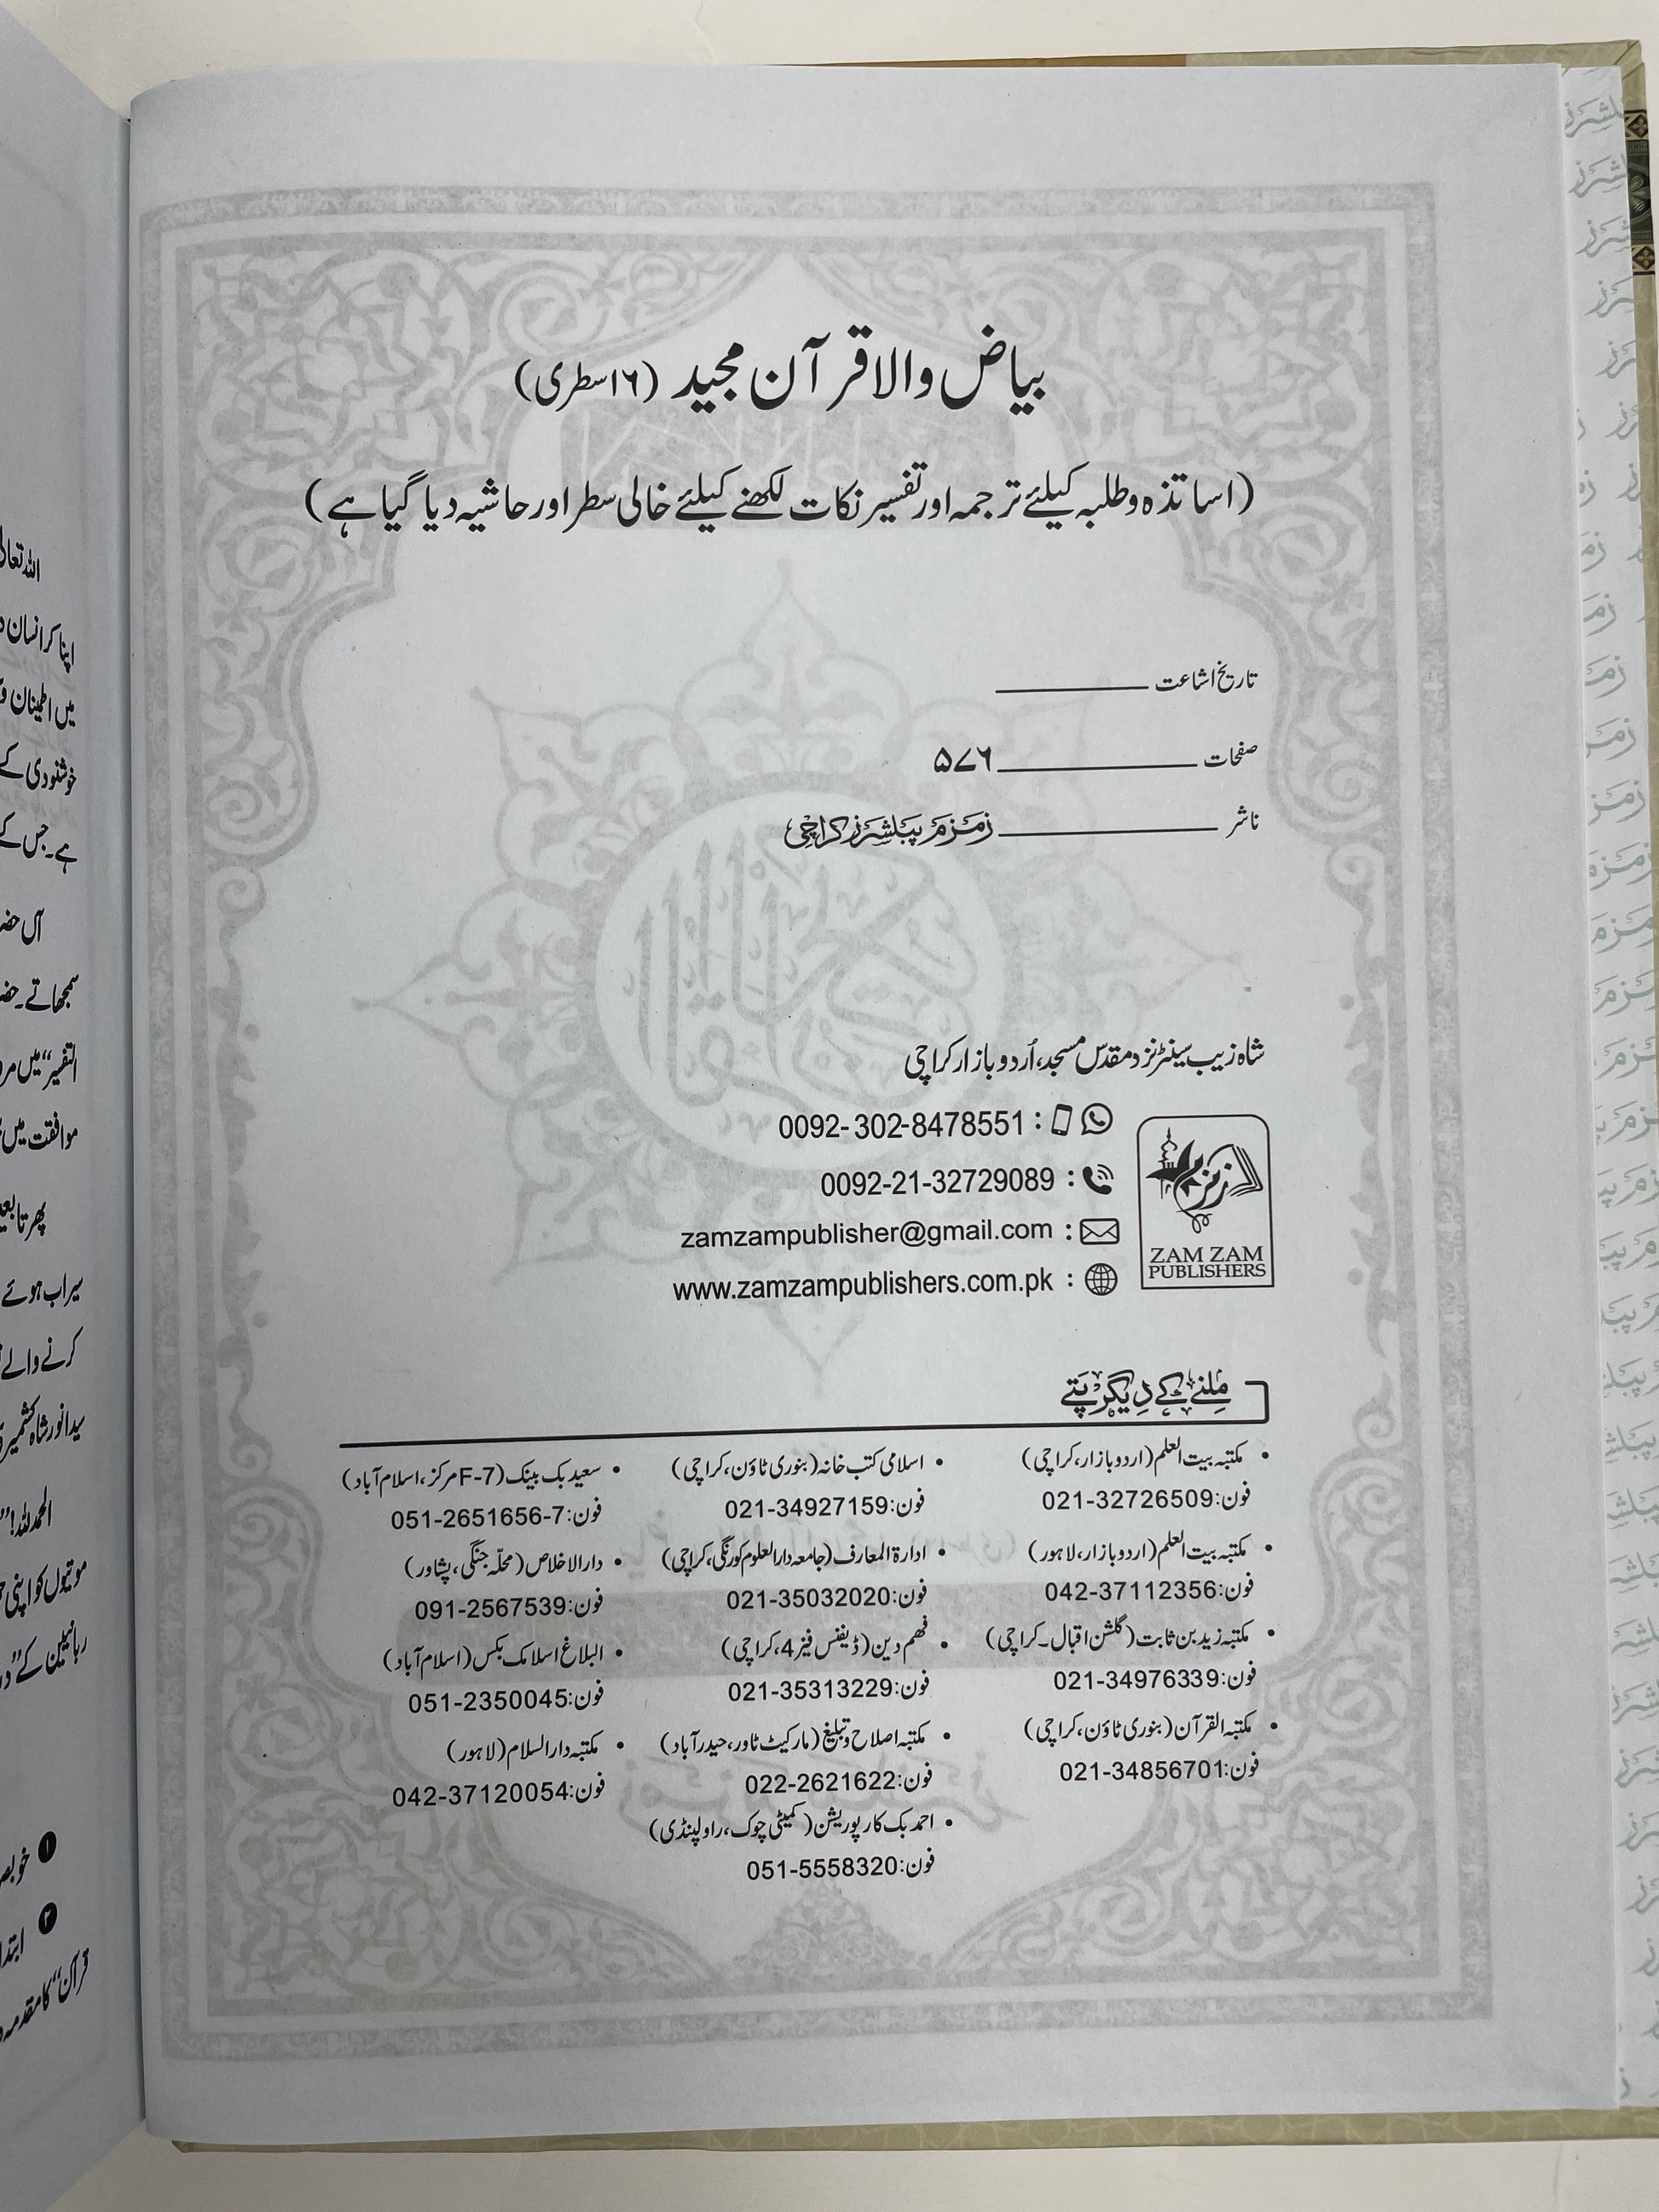 بیاض والا قرآن مجید (۱۶ سطری)
(اساتذہ و طلبہ کیلئے ترجمہ اور تفسیر نکات لکھنے کیلئے خالی سطر اور حاشیہ دیا گیا ہے)
تاریخ اشاعت
صفحات ۵۷۶
ناشر زمزم پبلشرز کراچی
شاہ زیب سینٹر نزد مقدس مسجد، اُردو بازار کراچی
: 0092-302-8478551
: 0092-21-32729089
: zamzampublisher@gmail.com
: www.zamzampublishers.com.pk
زمزم
ZAM ZAM
PUBLISHERS
مِلنے کے دِیگر پتے
• مکتبہ بیت العلم (اردو بازار، کراچی)
فون:021-32726509
• مکتبہ بیت العلم (اردو بازار، لاہور)
فون:042-37112356
• مکتبہ زید بن ثابت (گلشن اقبال۔کراچی)
فون:021-34976339
• مکتبہ القرآن (بنوری ٹاؤن، کراچی)
فون:021-34856701
• اسلامی کتب خانہ (بنوری ٹاؤن، کراچی)
فون:021-34927159
• ادارۃ المعارف (جامعہ دارالعلوم کورنگی، کراچی)
فون:021-35032020
• فہم دین (ڈیفنس فیز 4، کراچی)
فون:021-35313229
• مکتبہ اصلاح و تبلیغ (مارکیٹ ٹاور، حیدرآباد)
فون:022-2621622
• احمد بک کارپوریشن (کمیٹی چوک، راولپنڈی)
فون:051-5558320
• سعید بک بینک (F-7 مرکز، اسلام آباد)
فون:051-2651656-7
• دارالاخلاص (محلّہ جنگی، پشاور)
فون:091-2567539
• البلاغ اسلامک بکس (اسلام آباد)
فون:051-2350045
• مکتبہ دارالسلام (لاہور)
فون:042-37120054
اللہ تعالیٰ
اپنا کر انسان
میں اطمینان
خوشنودی کے
ہے۔ جس کے
آں
سمجھاتے۔
التفسیر“ میں
موافقت میں
پھر تابعین
سیراب ہوئے
کرنے والے
سید انور شاہ کشمیری
الحمد للہ! ”
موتیوں کو اپنی
ربانیین کے ”
۱
۲ ابتدا
قرآن“ کا مقدمہ